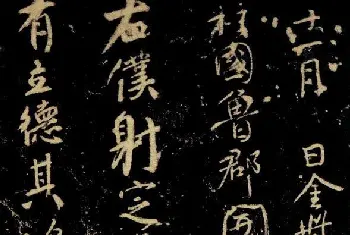 十一月 日金
柱國魯郡開
右僕射定
有立德其